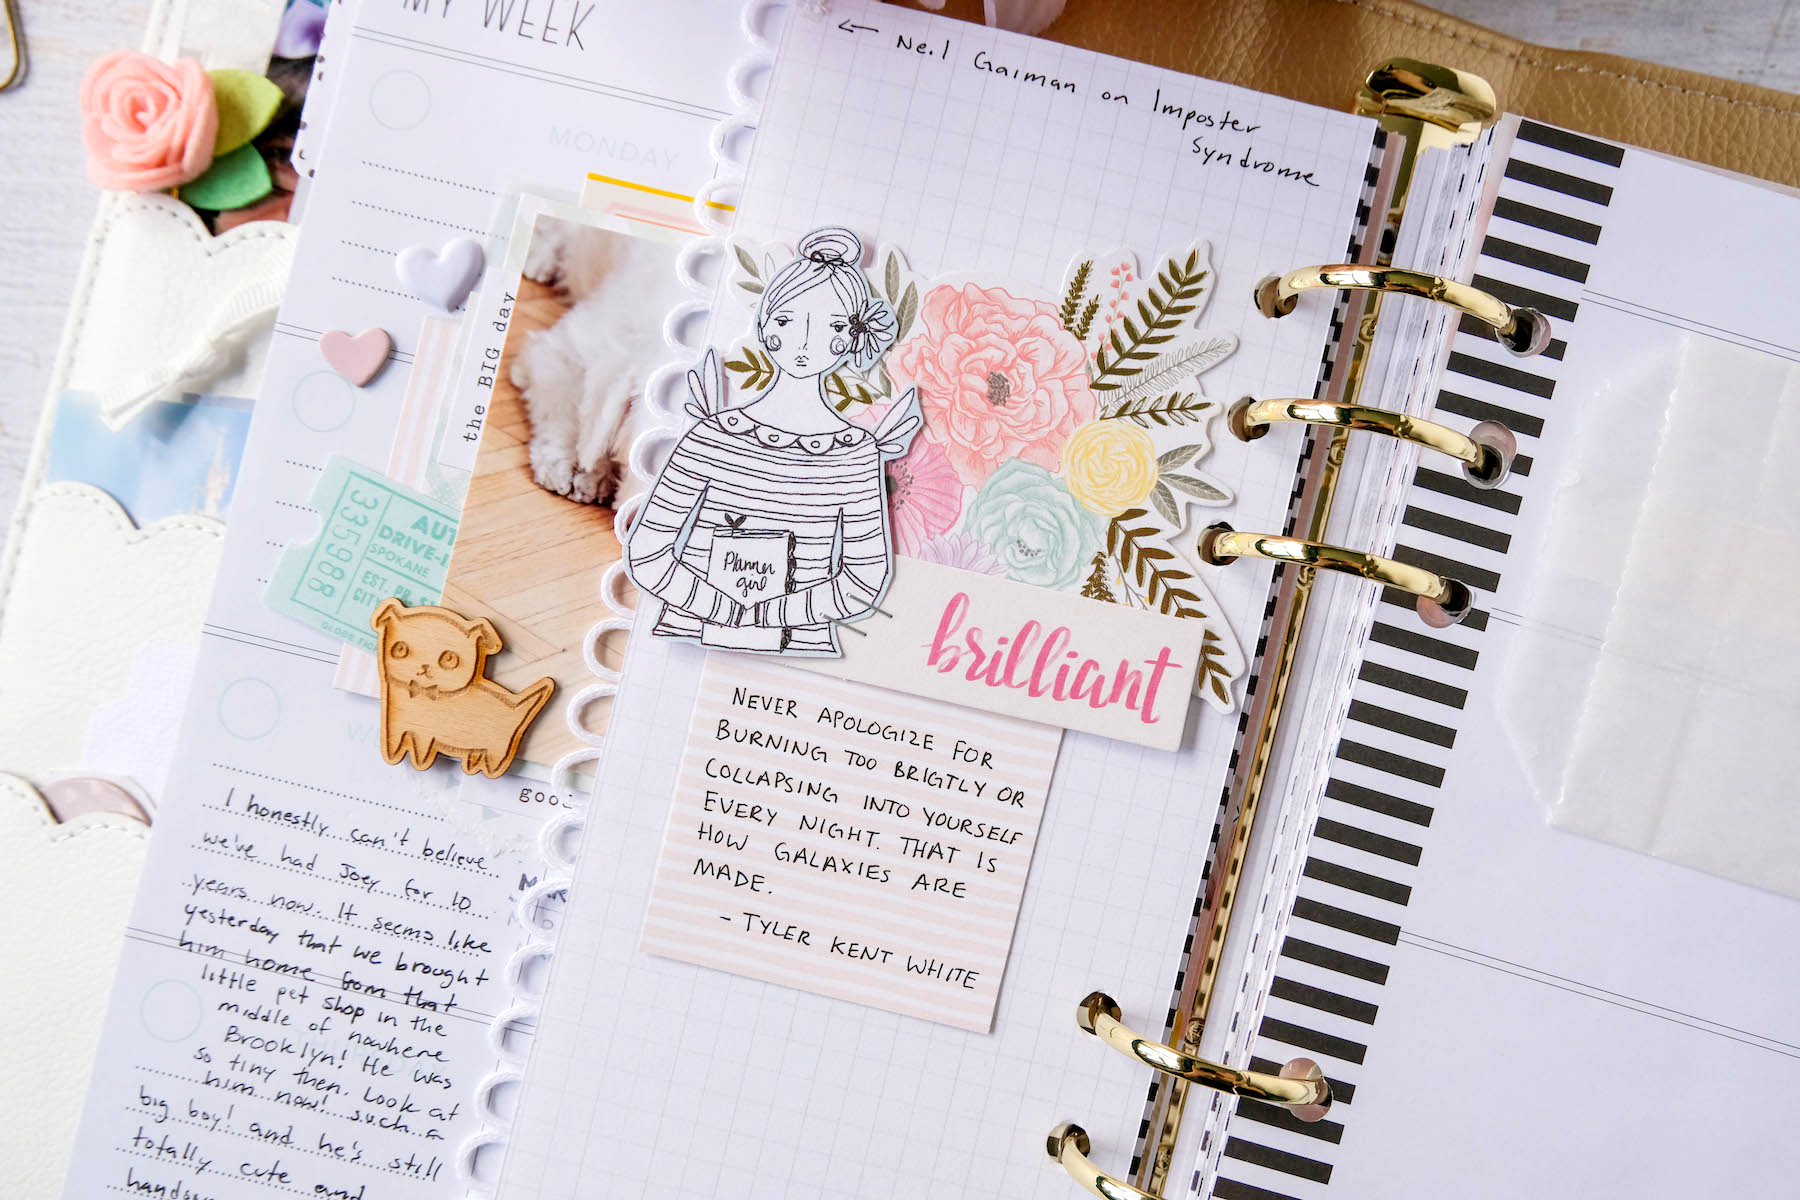 MY WEEK
MONDAY
← Neil Gaiman on Imposter
Syndrome
the BIG day
335988
AUT
DRIVE-I
SPOKANE
EST. PR.
CITY
Planner
girl
brilliant
NEVER APOLOGIZE FOR
BURNING TOO BRIGTLY OR
COLLAPSING INTO YOURSELF
EVERY NIGHT. THAT IS
HOW GALAXIES ARE
MADE.
- TYLER KENT WHITE
goo
I honestly can't believe
we've had Joey for 10
years now. It seems like
yesterday that we brought
him home from that
little pet shop in the
middle of nowhere
Brooklyn! He was
so tiny then. Look at
him now! such a
big boy! and he's still
totally cute and